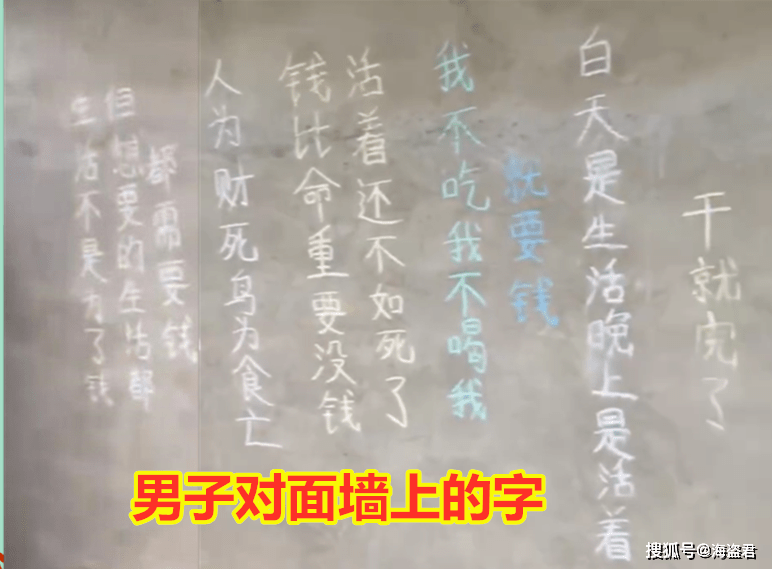 生活不是为了钱
但想要的生活都
都需要钱
人为财死鸟为食亡
钱比命重要没钱
活着还不如死了
我不吃我不喝我
就要钱
白天是生活晚上是活着
干就完了
男子对面墙上的字
搜狐号@海盗君